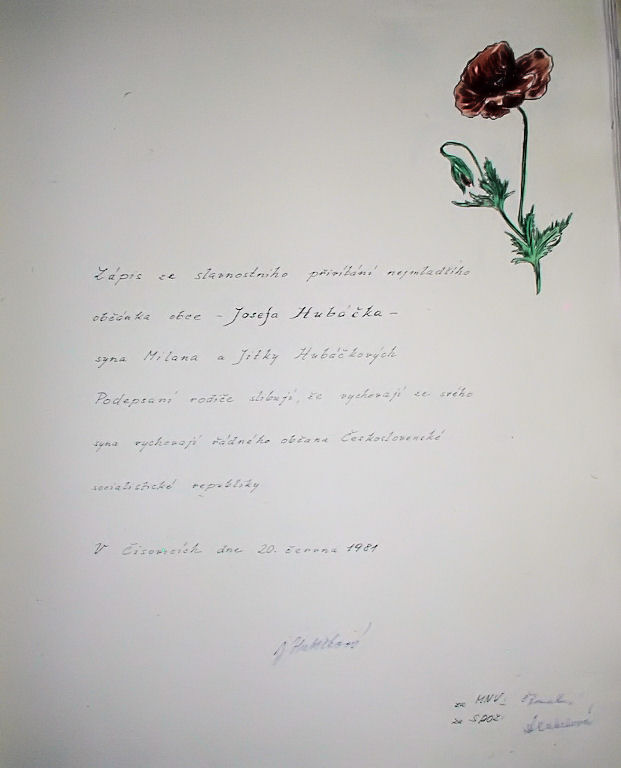 Zápis ze slavnostního přivítání nejmladšího
občánka obce - Josefa Hubáčka -
syna Milana a Jitky Hubáčkových
Podepsaní rodiče slibují, že vychovají ze svého
syna vychovají řádného občana Československé
socialistické republiky
V Čisovicích dne 20. června 1981
za MNV:
za SPOZ: